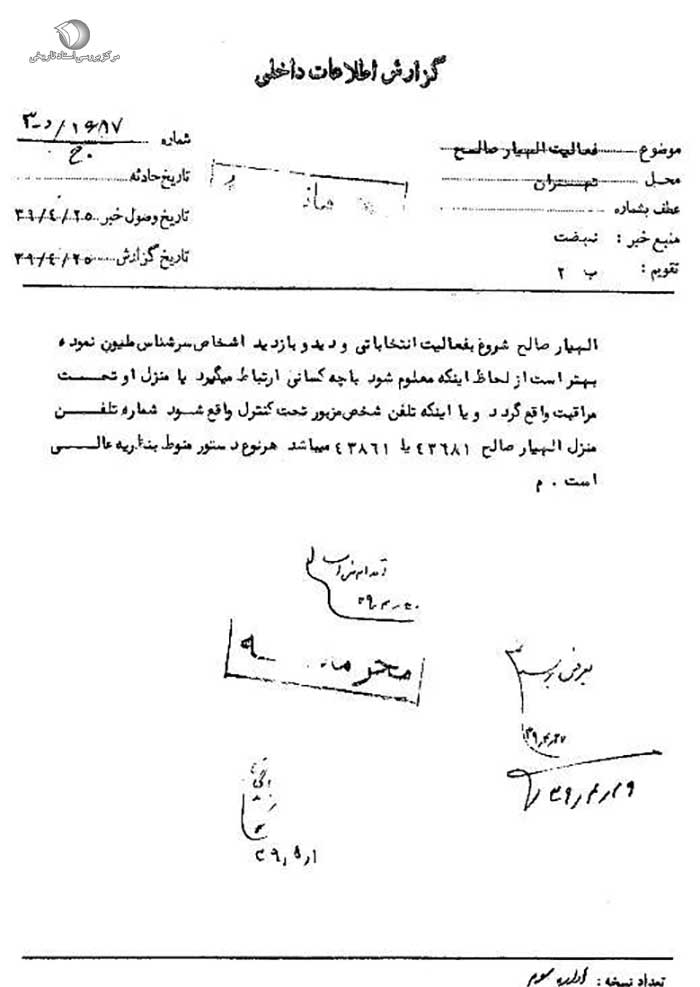 مرکز بررسی اسناد تاریخی
گزارش اطلاعات داخلی
موضوع فعالیت الهیار صالح
محل تهران
عطف بشماره
منبع خبر : نهضت
تقویم : ب ۲
شماره
تاریخ حادثه
تاریخ وصول خبر ۳۹/۴/۲۵
تاریخ گزارش ۳۹/۴/۲۵
الهیار صالح شروع بفعالیت انتخاباتی و دید و بازدید اشخاص سرشناس ملیون نموده
بهتر است از لحاظ اینکه معلوم شود باچه کسانی ارتباط میگیرد یا منزل او تحت
مراقبت واقع گردد و یا اینکه تلفن شخص مزبور تحت کنترل واقع شود شماره تلفن
منزل الهیار صالح ٤٣٦٨١ یا ٤٣٨٦١ میباشد هرنوع دستور منوط بنظریه عالی
است . م
محرمانه
۳۹٫۴٫۲۷
۳۹٫۴٫۲۹
۳۹٫۵٫۱
تعداد نسخه :